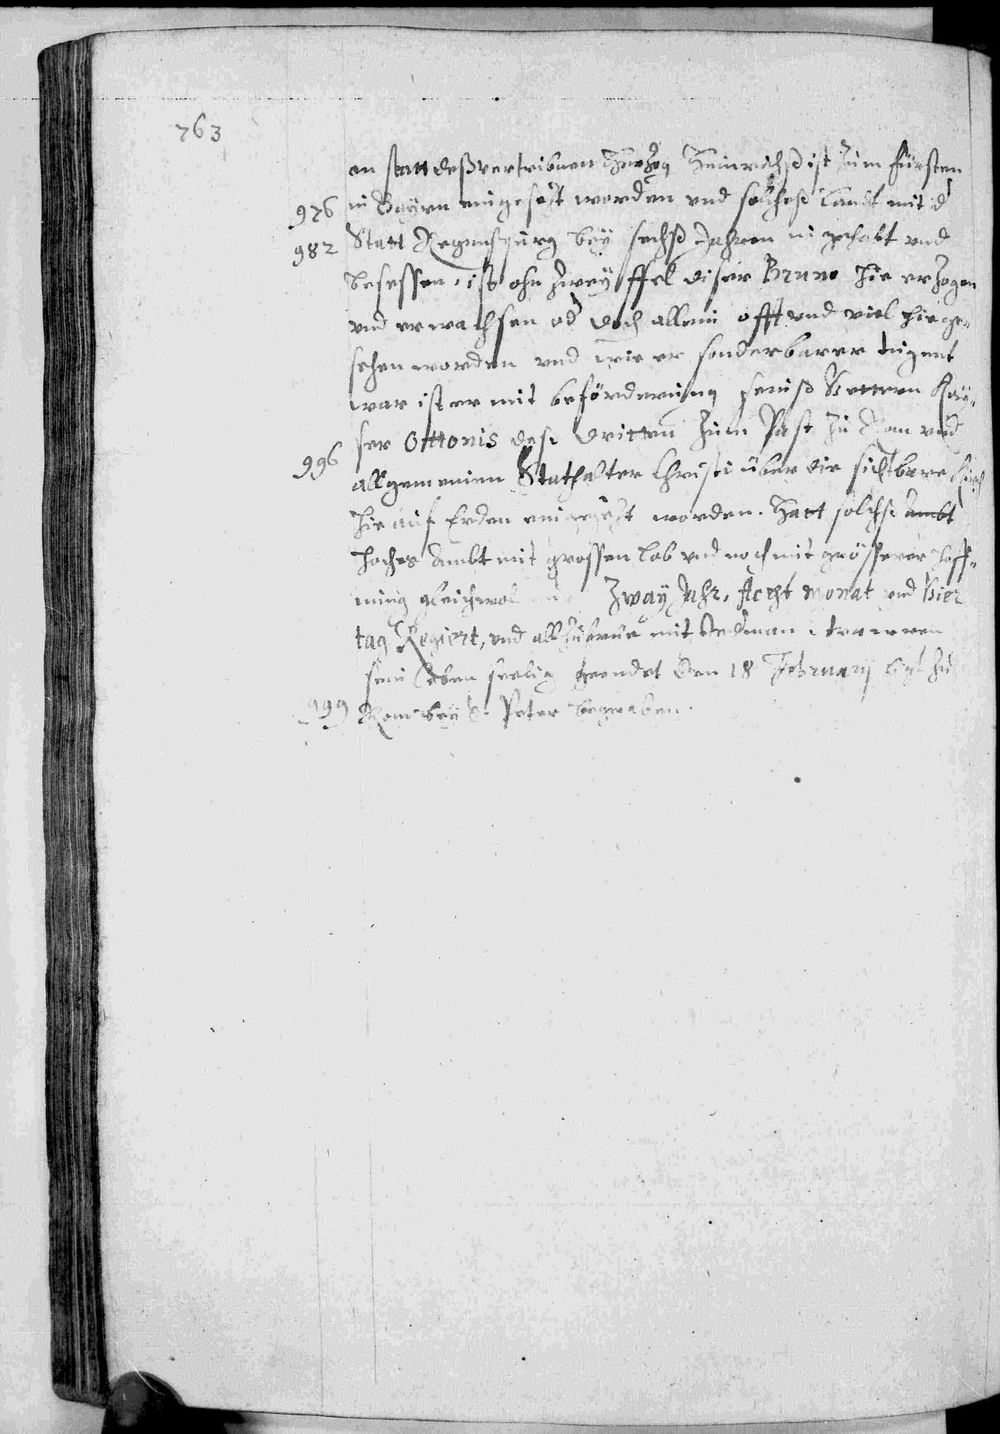 763
an statt deß vertribnen Herzog Heinrichß ist zum fürsten
976 in Bayrn eingesezt worden und solcheß Landt mit d
982 Statt Regenspurg bey sechß Jahren in gehabt und
besessen, ist ohn zweyffel diser Bruno hie erzogen
und erwachsen od doch allein offt und viel hie ge-
sehen worden und wie er sonderbarer tugent
war ist er mit beförderung seinß Vettern Kay-
ser Ottonis deß dritten zum Pabst zu Rom und
996 allgemeinen Stathalter Christi über die sichtbare Kirch
hie auf Erden eingesezt worden. Hatt solchß ambt
hoches Ambt mit grossen lob und noch mit grösserer hoff-
nung gleichwol nur Zway Jahr, Acht monat und Vier
tag Regiert, und allzu mit Jederman trauren
sein leben seelig geendet den 18 February ligt zu
999 Rom bey S. Peter begraben.